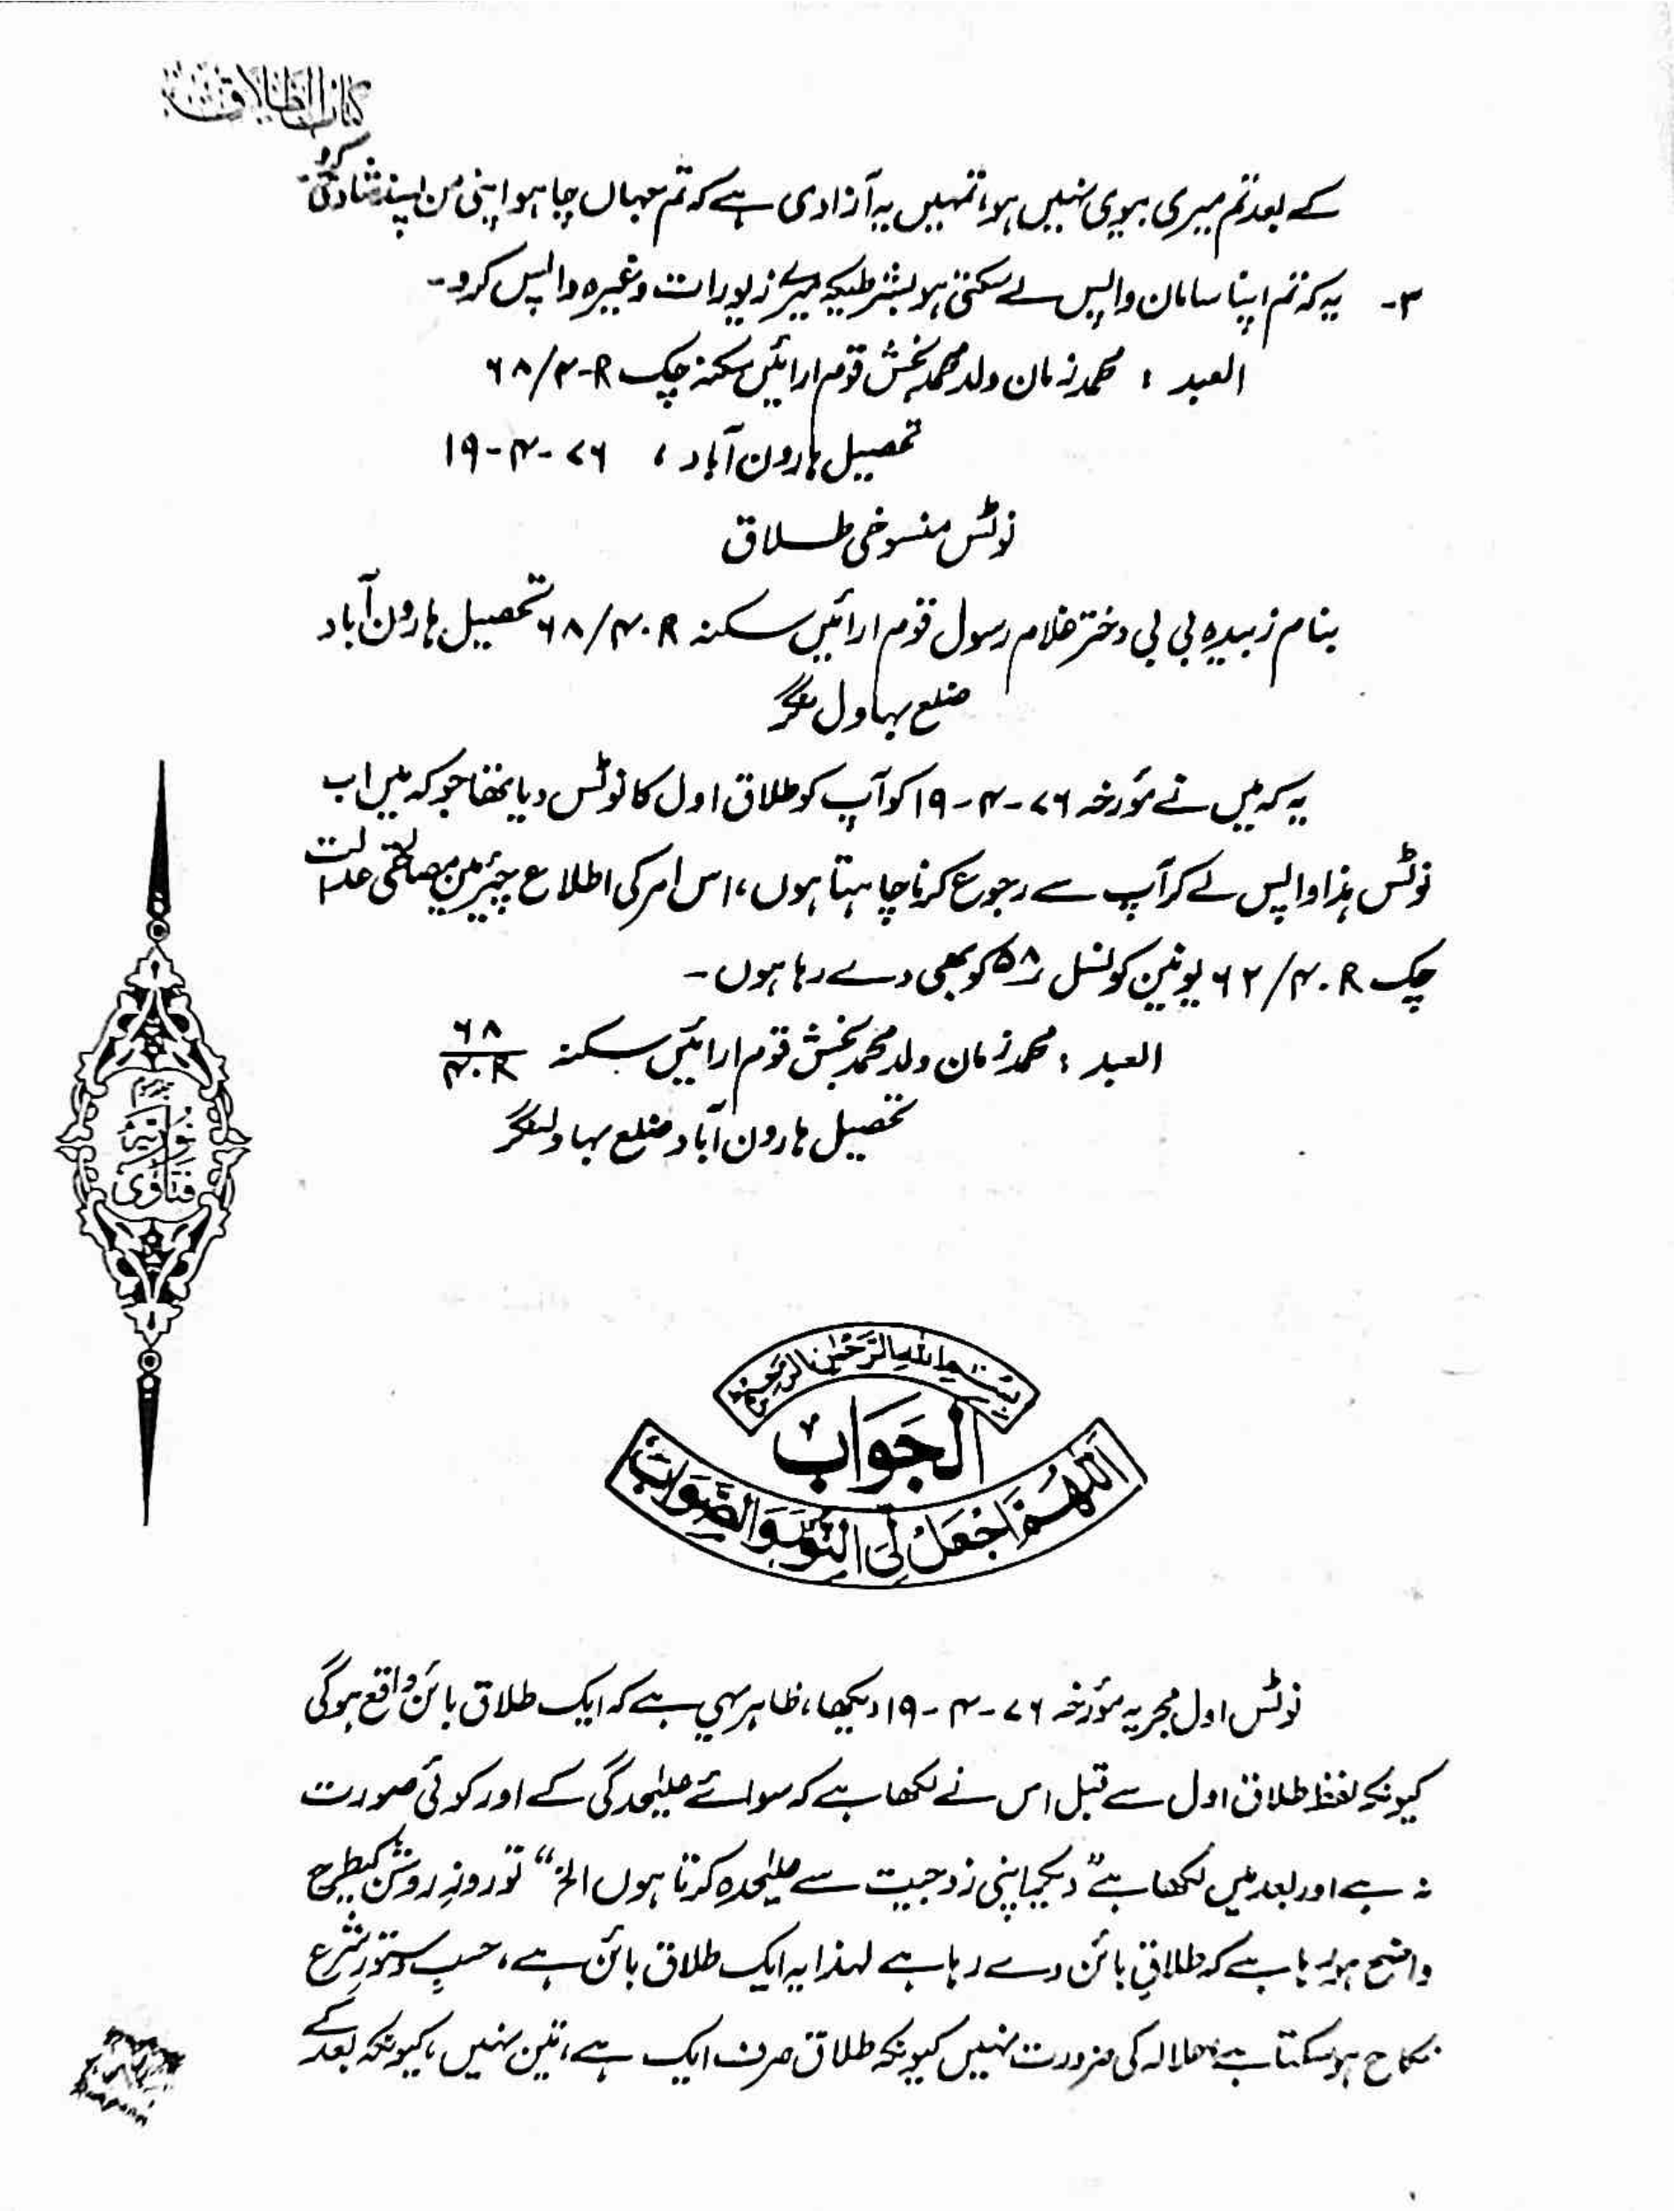 کتاب الطلاق
کے بعد تم میری بیوی نہیں ہو، تمہیں یہ آزادی ہے کہ تم جہاں چاہو اپنی من پسند شادی کرو
۳- یہ کہ تم اپنا سامان واپس لے سکتی ہو بشرطیکہ میرے زیورات وغیرہ واپس کرو۔
العبد : محمد زمان ولد محمد بخش قوم ارائیں سکنہ چک ۶۸/۴-R
تحصیل ہارون آباد، ۷۶-۴-۱۹
نوٹس منسوخی طلاق
بنام زبیدہ بی بی دختر غلام رسول قوم ارائیں سکنہ ۶۸/۴.R تحصیل ہارون آباد
ضلع بہاول نگر
یہ کہ میں نے مؤرخہ ۷۶-۴-۱۹ کو آپ کو طلاق اول کا نوٹس دیا تھا جو کہ میں اب
نوٹس ہذا واپس لے کر آپ سے رجوع کرنا چاہتا ہوں، اس امر کی اطلاع چیئرمین مصالحتی عدالت
چک ۶۲/۴.R یونین کونسل ۵۸ کو بھی دے رہا ہوں۔
العبد : محمد زمان ولد محمد بخش قوم ارائیں سکنہ ۶۸/۴.R
تحصیل ہارون آباد ضلع بہاولنگر
فتاویٰ نوریہ
بسم اللہ الرحمٰن الرحیم
الجَوَابُ
اَللّٰهُمَّ اجْعَلْ لِیَ النُّوْرَ وَالصَّوَابَ
نوٹس اول مجریہ مؤرخہ ۷۶-۴-۱۹ دیکھا، ظاہر یہی ہے کہ ایک طلاق بائن واقع ہوگی
کیونکہ لفظ طلاق اول سے قبل اس نے لکھا ہے کہ سوائے علیٰحدگی کے اور کوئی صورت
نہ ہے اور بعد میں لکھا ہے "دیکر اپنی زوجیت سے علیٰحدہ کرتا ہوں الخ" تو روزِ روشن کیطرح
واضح ہو رہا ہے کہ طلاقِ بائن دے رہا ہے لہذا یہ ایک طلاق بائن ہے، حسبِ دستورِ شرع
نکاح ہو سکتا ہے، حلالہ کی ضرورت نہیں کیونکہ طلاق صرف ایک ہے، تین نہیں، کیونکہ بعد کے